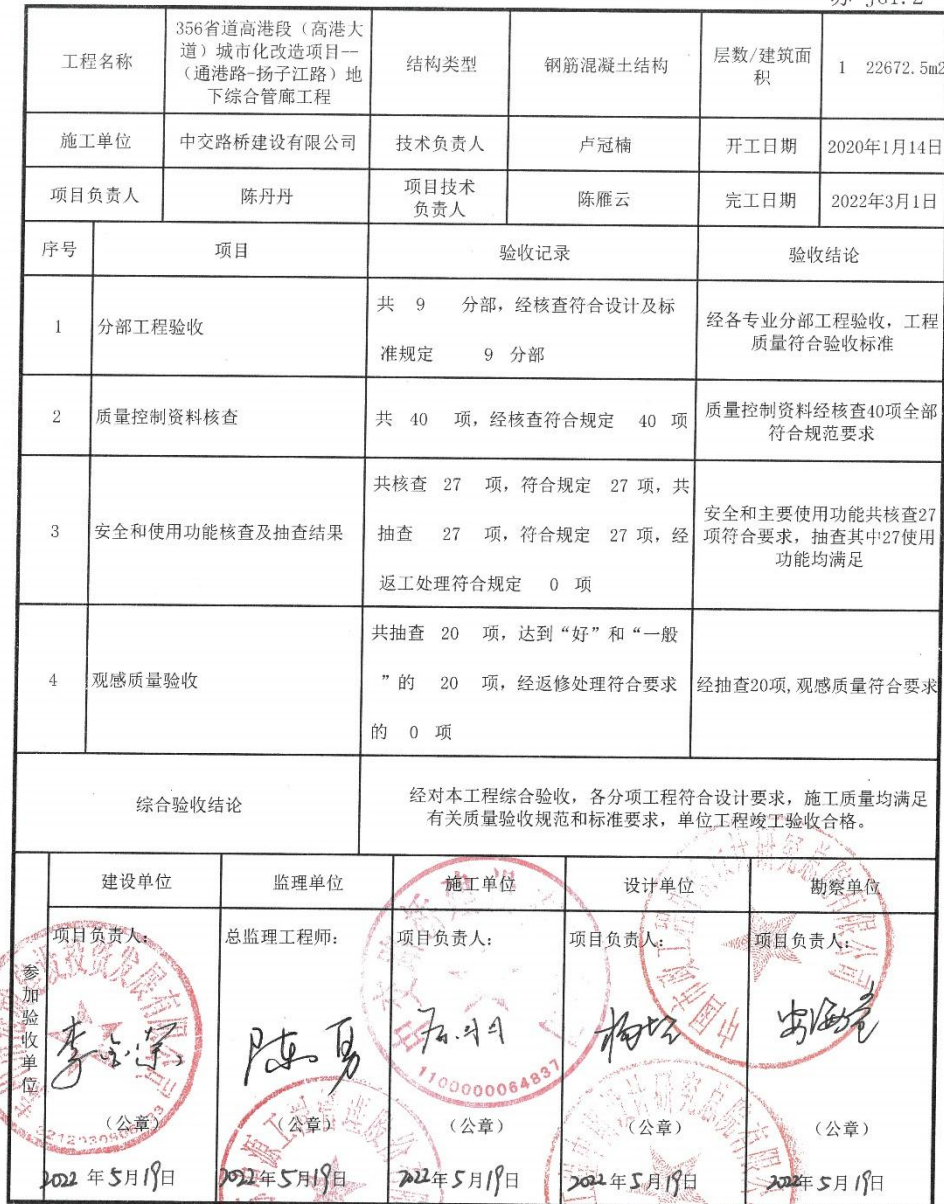 工程名称
356省道高港段（高港大
道）城市化改造项目--
（通港路-扬子江路）地
下综合管廊工程
结构类型
钢筋混凝土结构
层数/建筑面
积
1 22672.5m2
施工单位
中交路桥建设有限公司
技术负责人
卢冠楠
开工日期
2020年1月14日
项目负责人
陈丹丹
项目技术
负责人
陈雁云
完工日期
2022年3月1日
序号
项目
验收记录
验收结论
1
分部工程验收
共 9 分部，经核查符合设计及标
准规定 9 分部
经各专业分部工程验收，工程
质量符合验收标准
2
质量控制资料核查
共 40 项，经核查符合规定 40 项
质量控制资料经核查40项全部
符合规范要求
3
安全和使用功能核查及抽查结果
共核查 27 项，符合规定 27 项，共
抽查 27 项，符合规定 27 项，经
返工处理符合规定 0 项
安全和主要使用功能共核查27
项符合要求，抽查其中27使用
功能均满足
4
观感质量验收
共抽查 20 项，达到“好”和“一般
”的 20 项，经返修处理符合要求
的 0 项
经抽查20项,观感质量符合要求
综合验收结论
经对本工程综合验收，各分项工程符合设计要求，施工质量均满足
有关质量验收规范和标准要求，单位工程竣工验收合格。
参加验收单位
建设单位
监理单位
施工单位
设计单位
勘察单位
项目负责人：
总监理工程师：
项目负责人：
项目负责人：
项目负责人：
陈勇
1100000064837
（公章）
（公章）
（公章）
（公章）
（公章）
2022年5月19日
2022年5月19日
2022年5月19日
2022年5月19日
2022年5月19日